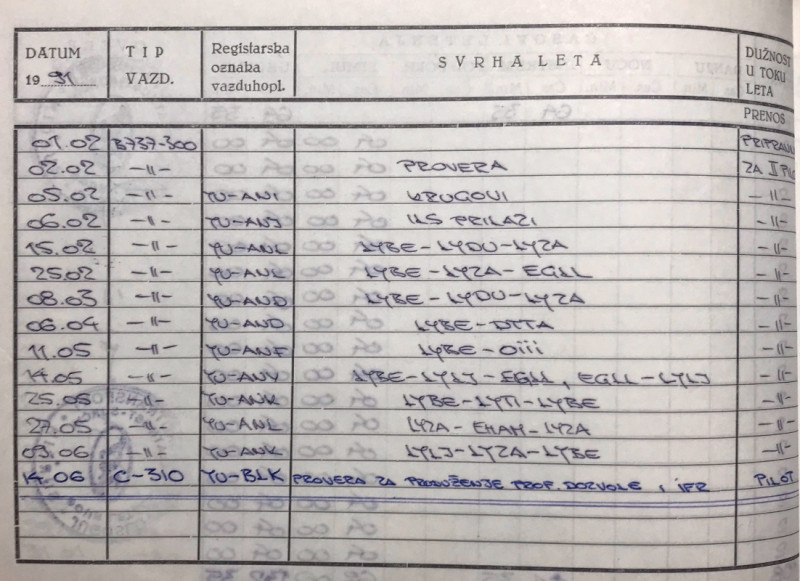 DATUM TIP Registarska SVRHA LETA DUŽNOST
19 91 VAZD. oznaka vazduhopl. U TOKU LETA
PRENOS
01.02 B737-300 PRIPRAVNIK
02.02 -11- PROVERA ZA II PIL
05.02 -11- YU-ANI KRUGOVI -11-
06.02 -11- YU-ANJ ILS PRILAZI -11-
15.02 -11- YU-ANL LYBE-LYDU-LYZA -11-
25.02 -11- YU-ANL LYBE-LYZA-EGLL -11-
08.03 -11- YU-AND LYBE-LYDU-LYZA -11-
06.04 -11- YU-AND LYBE-DTTA -11-
11.05 -11- YU-ANF LYBE-Oiii -11-
14.05 -11- YU-ANV LYBE-LYLJ-EGLL, EGLL-LYLJ -11-
25.05 -11- YU-ANK LYBE-LYTI-LYBE -11-
27.05 -11- YU-ANL LYZA-EHAM-LYZA -11-
03.06 -11- YU-ANK LYLJ-LYZA-LYBE -11-
14.06 C-310 YU-BLK PROVERA ZA PRODUŽENJE PROF. DOZVOLE, IFR PILOT